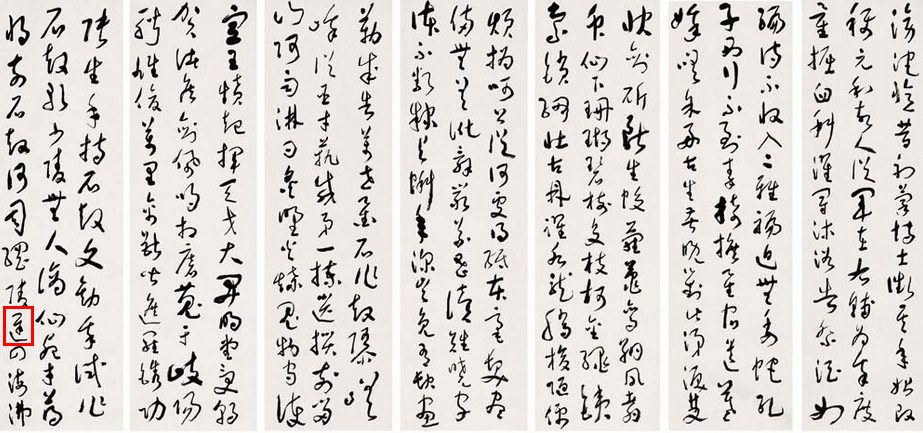 張生手持石鼓文勸我試作
石鼓歌少陵無人謫仙死才薄
將奈石鼓何周綱陵遲四海沸
宣王憤起揮天戈大開明堂受朝
賀諸侯劍佩鳴相磨蒐于岐陽
騁雄俊萬里禽獸皆遮羅鐫功
勒成告萬世鑿石作鼓隳嵯
峨從臣才藝咸第一揀選撰刻留
山阿雨淋日炙野火燎鬼物守護
煩撝呵公從何處得紙本毫髮盡
備無差訛辭嚴義密讀難曉字
體不類隸與蝌年深豈免有缺畫
快劍斫斷生蛟鼉鸞翔鳳翥
眾仙下珊瑚碧樹交枝柯金繩鐵
索鎖紐壯古鼎躍水龍騰梭陋儒
編詩不收入二雅褊迫無委蛇孔
子西行不到秦掎摭星宿遺羲
娥嗟余好古生苦晚對此涕淚雙
滂沱憶昔初蒙博士徵其年始改
稱元和故人從軍在右輔為我度
量掘臼科濯冠沐浴告祭酒如